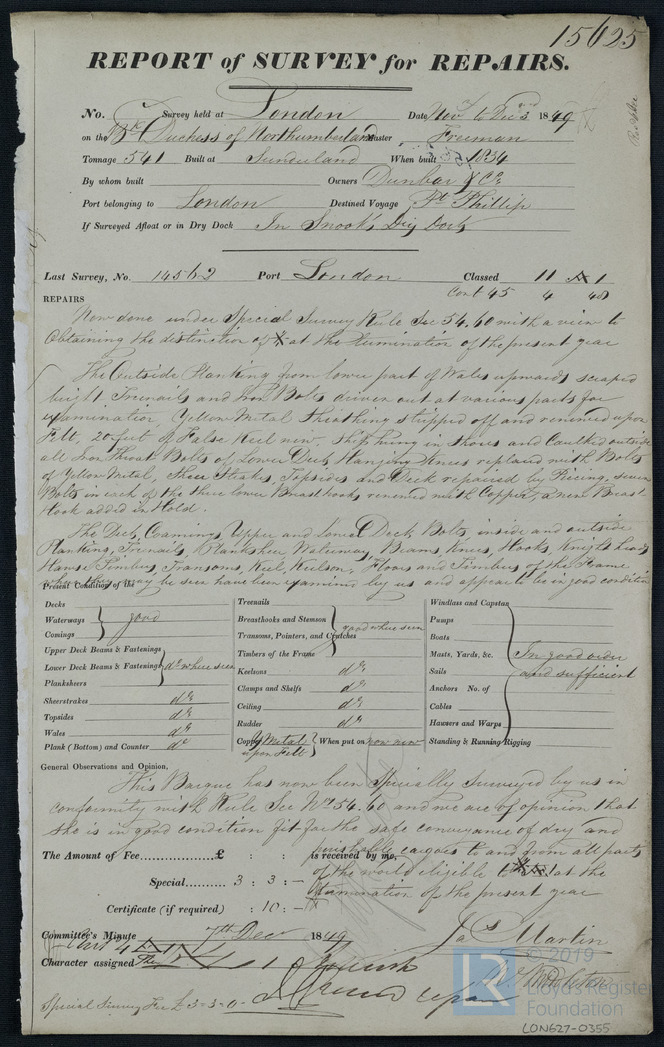 15625
REPORT of SURVEY for REPAIRS.
No. Survey held at London Date Novr to Decr 3 1849
on the Bk Duchess of Northumberland Master Freeman
Tonnage 541 Built at Sunderland When built 1834
By whom built Owners Dunbar & Co
Port belonging to London Destined Voyage Pt Phillip
If Surveyed Afloat or in Dry Dock In Snook's Dry Dock
Last Survey, No. 14562 Port London Classed 11 A 1
Cont 45 4 48
REPAIRS
Now done under Special Survey Rule Sec 54.60 with a view to
Obtaining the distinction of at the termination of the present year
The Outside Planking from lower part of Wales upwards scraped
bright Treenails and Iron Bolts driven out at various parts for
examination, Yellow Metal Sheathing stripped off and renewed upon
Felt, 20 feet of False Keel new. Ship hung in shores and Caulked outside
all Iron Throat Bolts of Lower Deck Hanging Knees replaced with Bolts
of Yellow Metal, Sheer Strakes, Topsides and Deck repaired by Piecing, seven
Bolts in each of the three lower Breasthooks renewed with Copper, a new Breast
Hook added in Hold.
The Deck, Coamings, Upper and Lower Deck Bolts inside and outside
Planking, Treenails, Planksheer Waterways, Beams, Knees, Hooks, Knightheads
Hawse Timbers Transoms, Keel Keelson, Floors and Timbers of the Frame
where they may be seen have been examined by us and appear to be in good condition
Present Condition of the
Decks
Waterways good
Comings
Upper Deck Beams & Fastenings
Lower Deck Beams & Fastenings do where seen
Planksheers
Sheerstrakes do
Topsides do
Wales do
Plank (Bottom) and Counter do
Treenails
Breasthooks and Stemson good where seen
Transoms, Pointers, and Crutches
Timbers of the Frame
Keelsons do
Clamps and Shelfs do
Ceiling do
Rudder do
Copper Y Metal upon Felt When put on now new
Windlass and Capstan
Pumps
Boats
Masts, Yards, &c. In good order
Sails and sufficient
Anchors No. of
Cables
Hawsers and Warps
Standing & Running Rigging
General Observations and Opinion,
This Barque has now been Specially Surveyed by us in
conformity with Rule Sec No 54.60 and we are of opinion that
she is in good condition fit for the safe conveyance of dry and
perishable cargoes to and from all parts
of the world eligible to at the
termination of the present year
The Amount of Fee £ : : is received by me,
Special 3 : 3 : -
Certificate (if required) : 10 : -
Committee's Minute 7th Decr 1849
Jas Martin
Character assigned
Special Survey Fee £3-3-0
© 2019
LR
Lloyd's Register
Foundation
LON627-0355